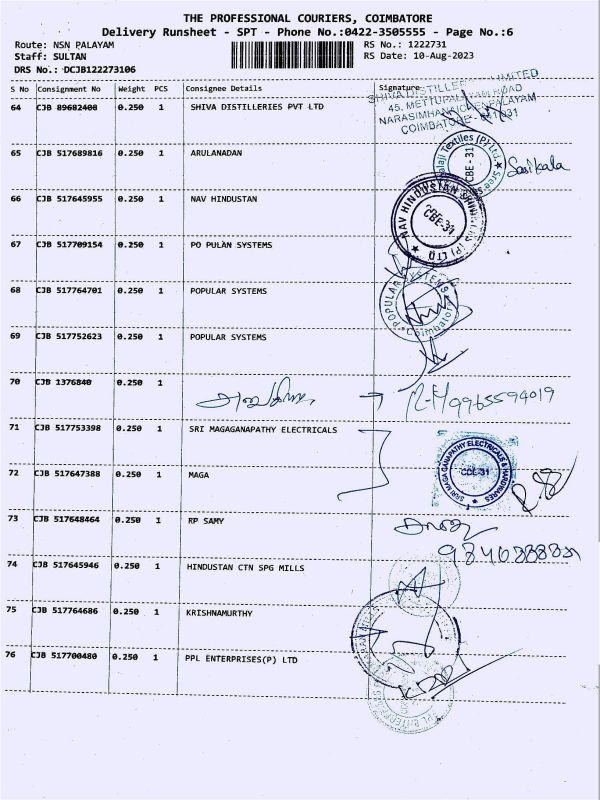 THE PROFESSIONAL COURIERS, COIMBATORE
Delivery Runsheet - SPT - Phone No.:0422-3505555 - Page No.:6
Route: NSN PALAYAM RS No.: 1222731
Staff: SULTAN RS Date: 10-Aug-2023
DRS No.: DCJB122273106
S No Consignment No Weight PCS Consignee Details Signature
64 CJB 89682408 0.250 1 SHIVA DISTILLERIES PVT LTD
SHIVA DISTILLERIES LIMITED
45, METTUPALAYAM ROAD
NARASIMHANAICKENPALAYAM
COIMBATORE - 641 031
65 CJB 517689816 0.250 1 ARULANADAN
Balaji Textiles (P) Ltd. Sree
CBE - 31
Sasikala
66 CJB 517645955 0.250 1 NAV HINDUSTAN
NAV HINDUSTAN (P) LTD
CBE-31
67 CJB 517709154 0.250 1 PO PULAN SYSTEMS
68 CJB 517764701 0.250 1 POPULAR SYSTEMS
POPULAR SYSTEMS
Coimbatore
69 CJB 517752623 0.250 1 POPULAR SYSTEMS
70 CJB 1376840 0.250 1
→ 9965594019
71 CJB 517753398 0.250 1 SRI MAGAGANAPATHY ELECTRICALS
SRI MAGA GANAPATHY ELECTRICALS & HARDWARES
CBE-31
72 CJB 517647388 0.250 1 MAGA
73 CJB 517648464 0.250 1 RP SAMY
74 CJB 517645946 0.250 1 HINDUSTAN CTN SPG MILLS
75 CJB 517764686 0.250 1 KRISHNAMURTHY
76 CJB 517700480 0.250 1 PPL ENTERPRISES(P) LTD